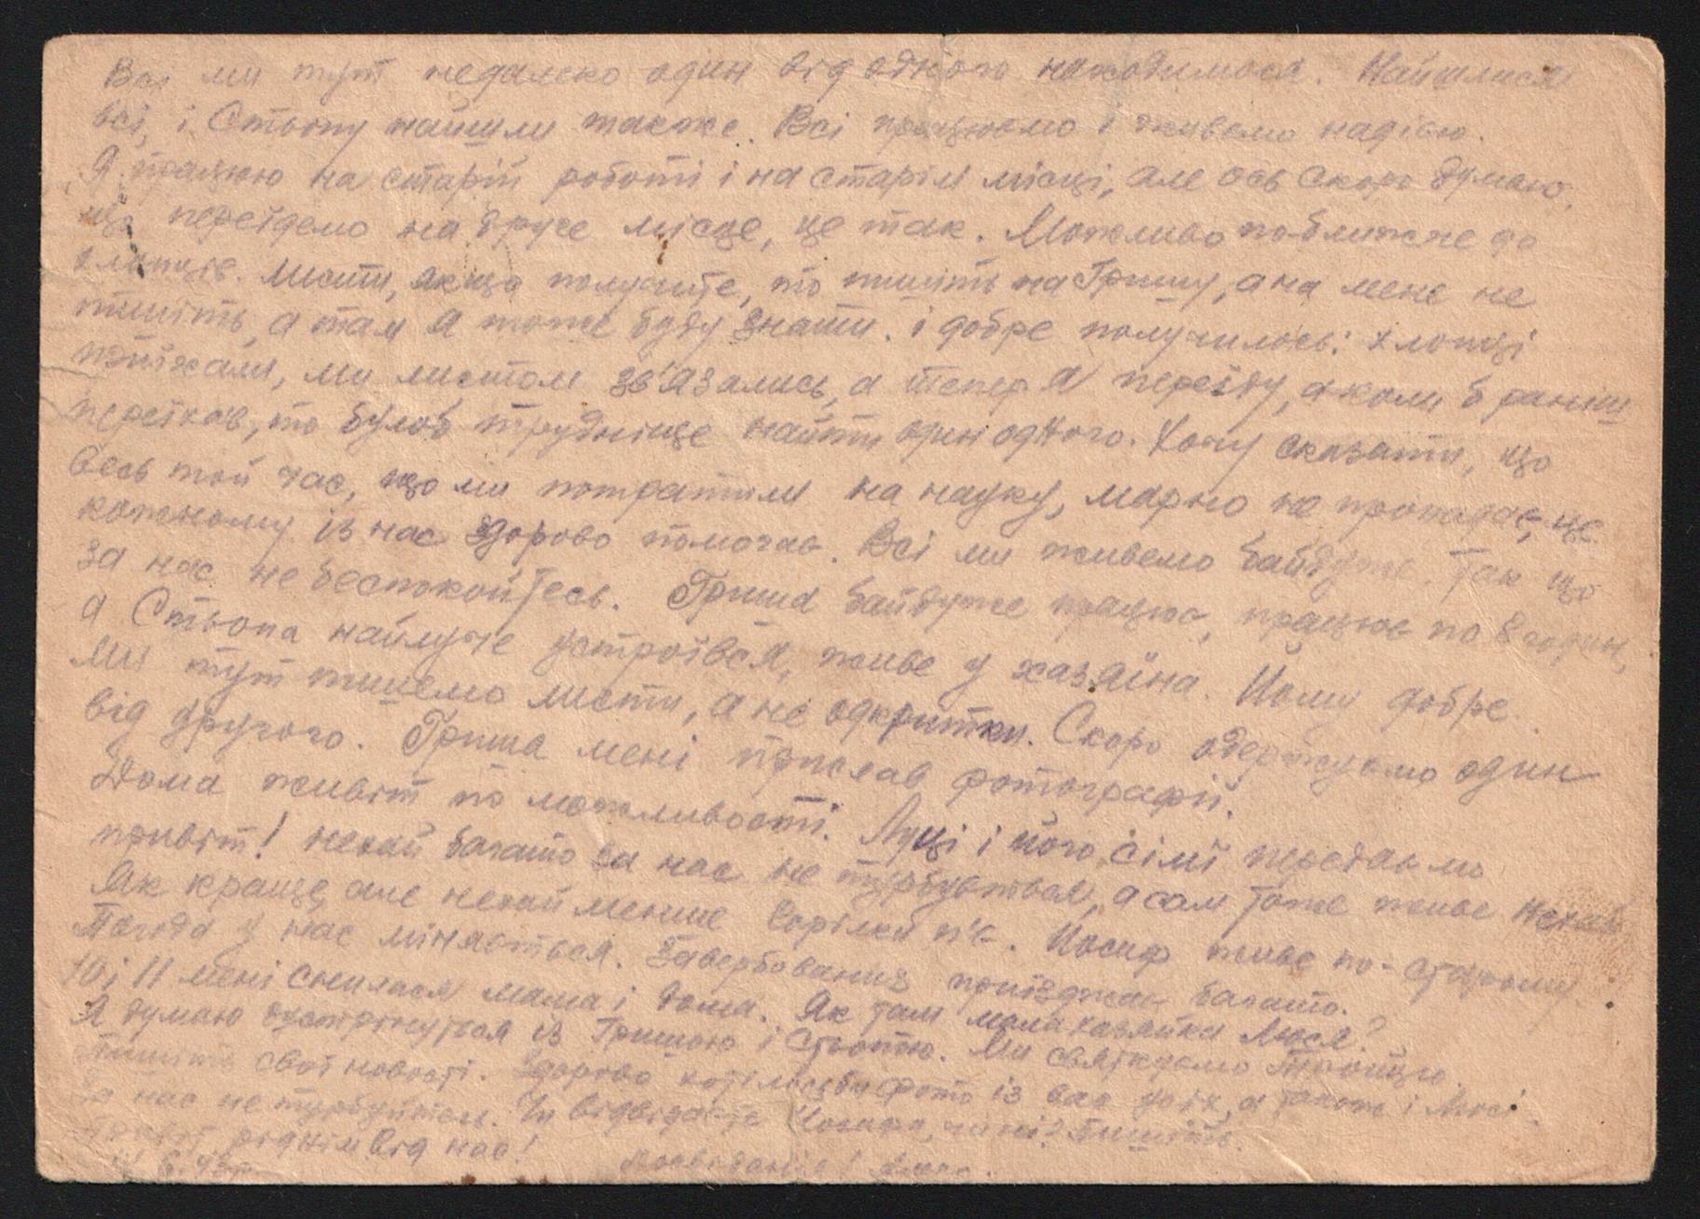 Всі ми тут недалеко один від одного находимося. Найшлися
всі, і Стьопу найшли также. Всі працюємо і живемо надією.
Я працюю на старій роботі і на старім місці, але ось скоро думаю,
що переїдемо на друге місце, це так. Можливо поближче до
хлопців. Листи, якщо получите, то пишіть на Гришу, а на мене не
пишіть, а там я тоже буду знати. і добре получилось: хлопці
приїхали, ми листом зв'язались, а тепер я переїду, а коли б раниш
переїхав, то було б трудніще найти один одного. Хочу сказати, що
весь той час, що ми потратили на науку, марно не пропадає, це
кожному із нас здорово помочає. Всі ми живемо байдуже. Так що
за нас не беспокойтесь. Гриша байдуже працює, працює по 8 годин,
а Стьопа найлуче устроївся, живе у хазяїна. Йому добре.
Ми тут пишемо листи, а не одкритки. Скоро одержуємо один
від другого. Гриша мені прислав фотографії.
Дома живіт по можливості. Луці і його сім'ї передаємо
привіт! нехай багато за нас не турбується, а сам тоже живе нехай
як краще, але нехай менше горілки п'є. Йосиф живе по-старому.
Погода у нас міняється. Завербованих приїзджає багато.
10 і 11 мені снилася мама і дома. Як там мала хазяйка Люся?
Я думаю зустрінутися із Гришою і Стьопою. Ми святкуємо Тройцю
Пишіть свої новості. Здорово хотілось би фото із вас усіх, а також і Люсі.
За нас не турбуйтесь. Чи відвідаєте Йосифа, чи ні? Пишіть.
Привіт рідним від нас! Досвідання!
6.43р.